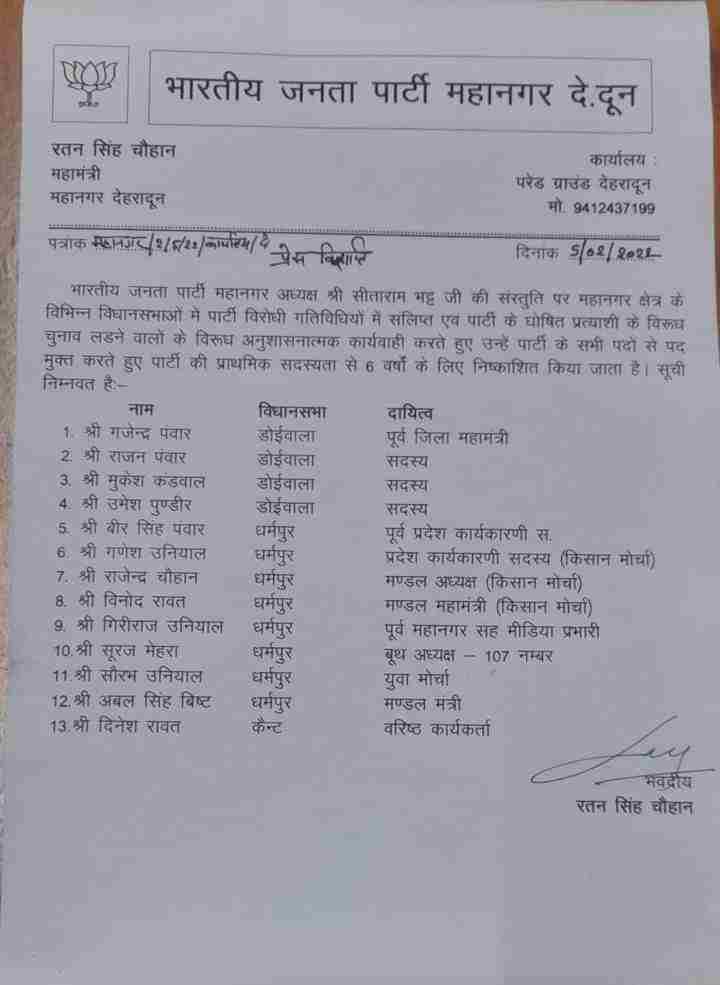 भाजपा
भारतीय जनता पार्टी महानगर दे.दून
रतन सिंह चौहान
महामंत्री
महानगर देहरादून
कार्यालय :
परेड ग्राउंड देहरादून
मो. 9412437199
पत्रांक महानगर/2/5/22/कार्यालय/दे
प्रेस विज्ञप्ति
दिनांक 5/02/2022
भारतीय जनता पार्टी महानगर अध्यक्ष श्री सीताराम भट्ट जी की संस्तुति पर महानगर क्षेत्र के
विभिन्न विधानसभाओं में पार्टी विरोधी गतिविधियों में संलिप्त एव पार्टी के घोषित प्रत्याशी के विरूध
चुनाव लडने वालों के विरूध अनुशासनात्मक कार्यवाही करते हुए उन्हें पार्टी के सभी पदों से पद
मुक्त करते हुए पार्टी की प्राथमिक सदस्यता से 6 वर्षों के लिए निष्काशित किया जाता है। सूची
निम्नवत है:–
नाम विधानसभा दायित्व
1. श्री गजेन्द्र पंवार डोईवाला पूर्व जिला महामंत्री
2. श्री राजन पंवार डोईवाला सदस्य
3. श्री मुकेश कंडवाल डोईवाला सदस्य
4. श्री उमेश पुण्डीर डोईवाला सदस्य
5. श्री बीर सिंह पंवार धर्मपुर पूर्व प्रदेश कार्यकारणी स.
6. श्री गणेश उनियाल धर्मपुर प्रदेश कार्यकारणी सदस्य (किसान मोर्चा)
7. श्री राजेन्द्र चौहान धर्मपुर मण्डल अध्यक्ष (किसान मोर्चा)
8. श्री विनोद रावत धर्मपुर मण्डल महामंत्री (किसान मोर्चा)
9. श्री गिरीराज उनियाल धर्मपुर पूर्व महानगर सह मीडिया प्रभारी
10.श्री सूरज मेहरा धर्मपुर बूथ अध्यक्ष – 107 नम्बर
11.श्री सौरभ उनियाल धर्मपुर युवा मोर्चा
12.श्री अबल सिंह बिष्ट धर्मपुर मण्डल मंत्री
13.श्री दिनेश रावत कैन्ट वरिष्ठ कार्यकर्ता
भवदीय
रतन सिंह चौहान